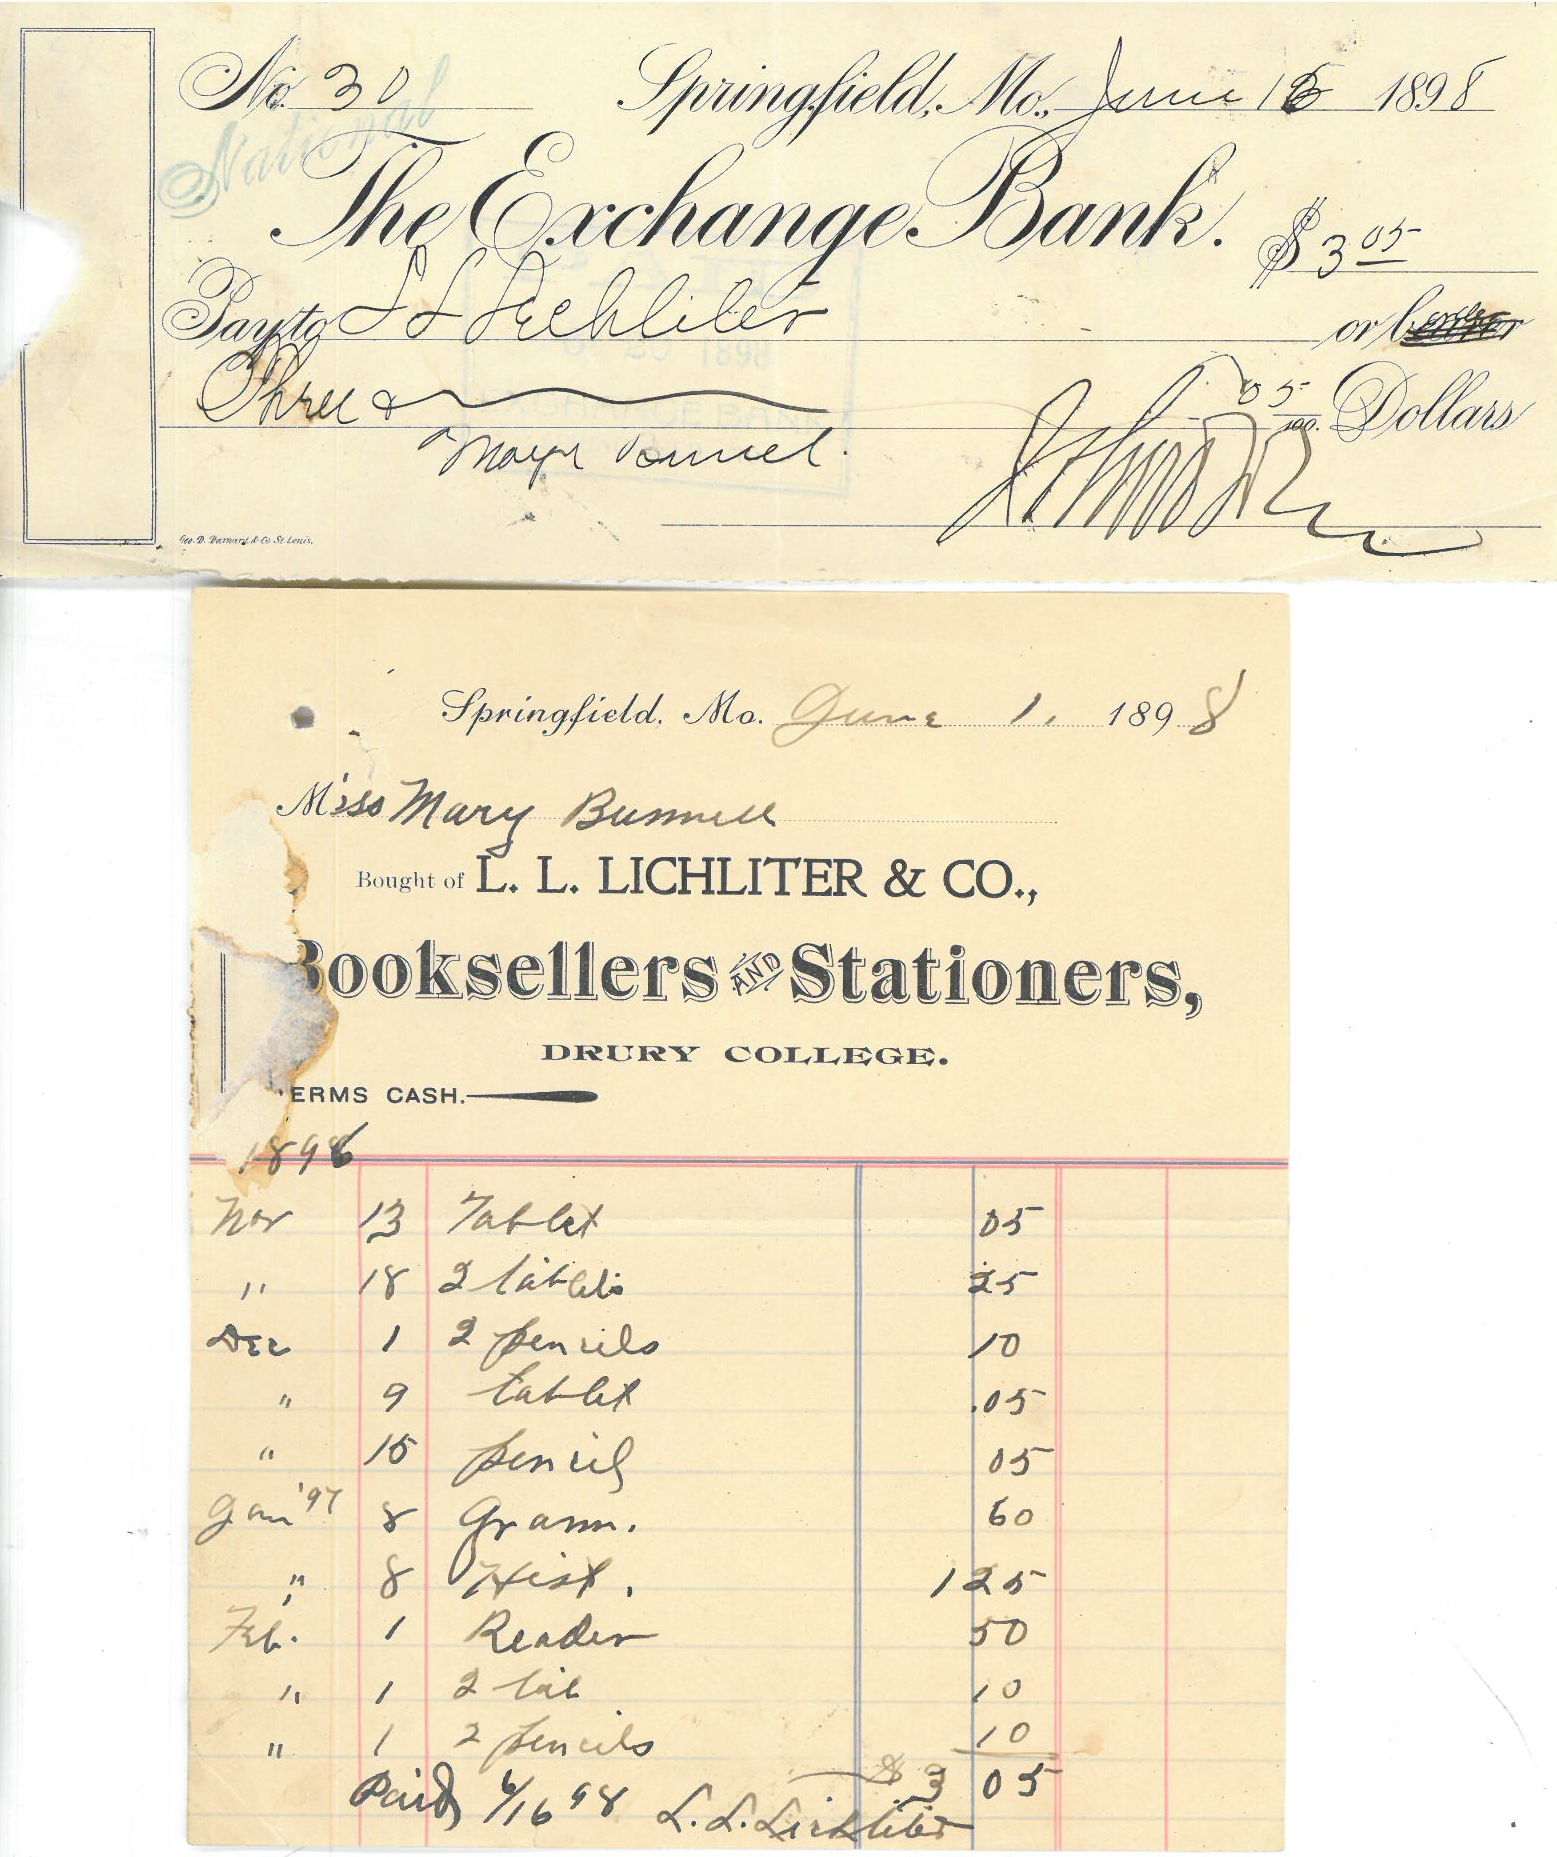 No. 30 Springfield, Mo., June 16 1898
National
The Exchange Bank.
$ 3 05
Pay to L L Lichliter or bearer
Three & 05/100 Dollars
Geo. D. Barnard & Co. St. Louis.
Springfield, Mo. June 1. 1898
Miss Mary Bunnell
Bought of L. L. LICHLITER & CO.,
Booksellers AND Stationers,
DRURY COLLEGE.
ERMS CASH.
1896
Nov 13 Tablet 05
" 18 2 tablets 25
Dec 1 2 pencils 10
" 9 tablet .05
" 15 pencil 05
Jan '97 8 Gramm. 60
" 8 Hist. 1 25
Feb. 1 Reader 50
" 1 2 tab 10
" 1 2 pencils 10
$ 3 05
Paid 6/16 98 L. L. Lichliter